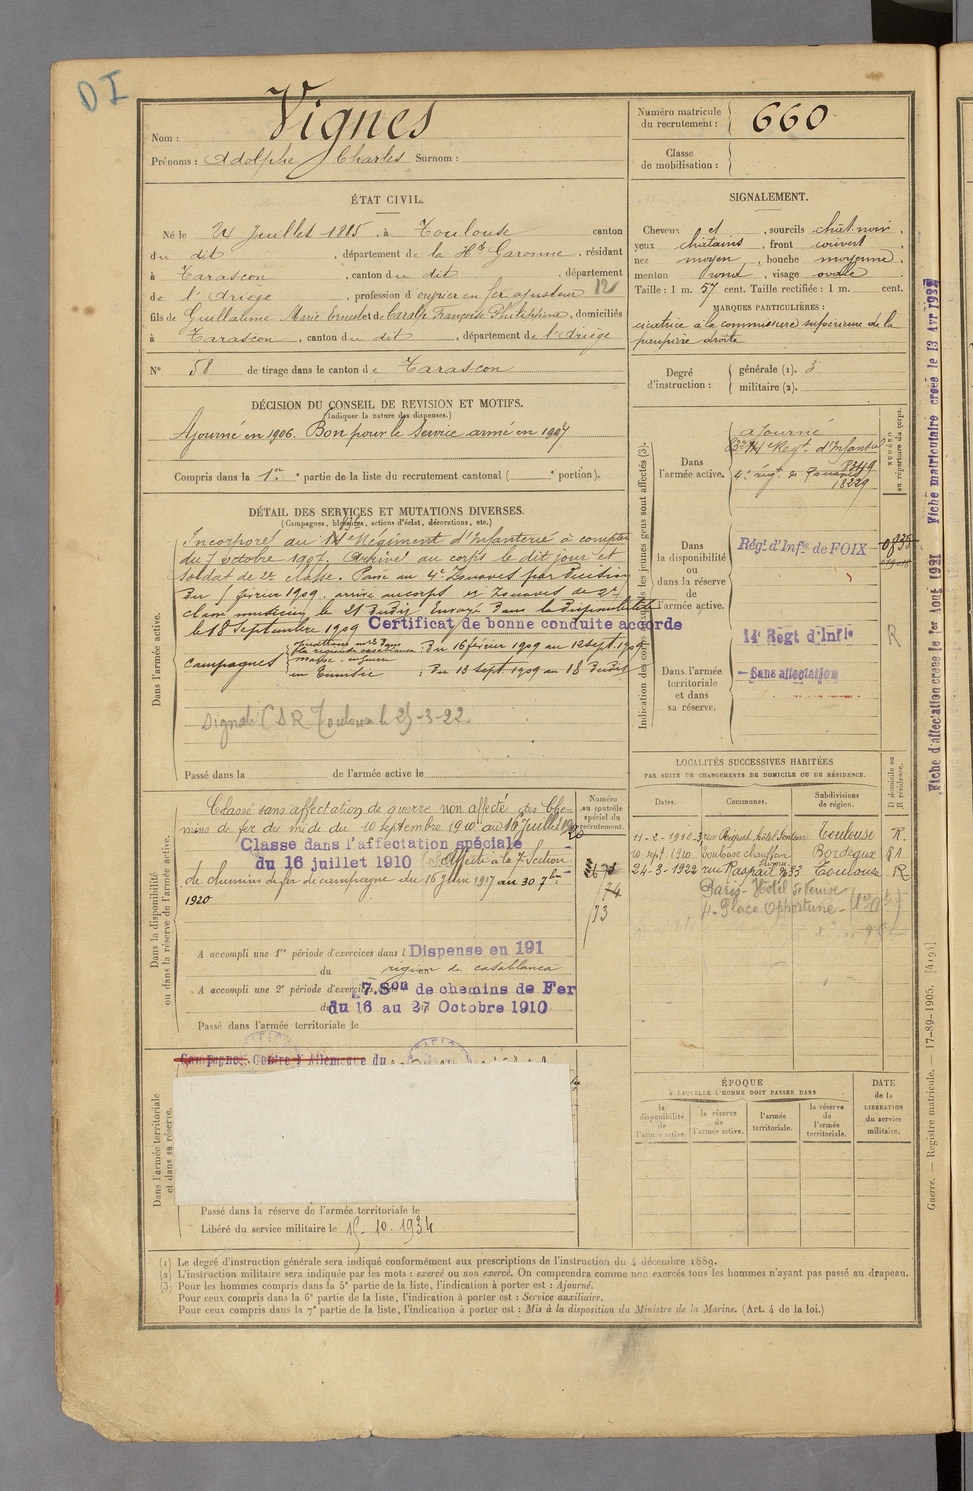 DI
Nom : Vignes
Prénoms : Adolphe Charles Surnom :
Numéro matricule du recrutement : 660
Classe de mobilisation :
ÉTAT CIVIL.
Né le 24 Juillet 1885, à Toulouse canton
du dit, département de la Hte Garonne, résidant
à Tarascon, canton du dit, département
de l'Ariège, profession d'ouvrier en fer ajusteur 12
fils de Guillaume Marie Ernest et de Caralp Françoise Philippine, domiciliés
à Tarascon, canton du dit, département de l'Ariège
N° 58 de tirage dans le canton de Tarascon
SIGNALEMENT.
Cheveux et, sourcils chât-noir,
yeux châtains, front couvert,
nez moyen, bouche moyenne,
menton rond, visage ovale
Taille : 1 m. 57 cent. Taille rectifiée : 1 m. cent.
MARQUES PARTICULIÈRES :
cicatrice à la commissure supérieure de la
paupière droite
Degré d'instruction : générale (1). 3
militaire (2).
DÉCISION DU CONSEIL DE REVISION ET MOTIFS.
(Indiquer la nature des dispenses.)
Ajourné en 1906. Bon pour le Service armé en 1907
Compris dans la 1re partie de la liste du recrutement cantonal ( e portion).
DÉTAIL DES SERVICES ET MUTATIONS DIVERSES.
(Campagnes, blessures, actions d'éclat, décorations, etc.)
Dans l'armée active.
Incorporé au Régiment d'Infanterie à compter
du 7 octobre 1907. Arrivé au corps le dit jour et
soldat de 2e classe. Passé au 4e Zouaves par décision
du février 1909. arrivé au corps et zouaves de 2e
classe musicien le 21 dudit. Envoyé dans la disponibilité
le 18 Septembre 1909 Certificat de bonne conduite accordé
Campagnes
Du 16 février 1909 au 12 sept. 1909
en Tunisie : Du 13 sept. 1909 au 18 dudit
Signalé S R Toulouse le 25-3-22
Passé dans la de l'armée active le
Indication des corps auxquels les jeunes gens sont affectés (3).
NUMÉRO au répertoire du corps.
Dans l'armée active.
Ajourné
Regt. d'Infanterie
4e régt. de Zouaves
18229
Dans la disponibilité ou dans la réserve de l'armée active.
Régt. d'Infie de FOIX
14e Regt d'Infie
R
Dans l'armée territoriale et dans sa réserve.
Sans affectation
Dans la disponibilité ou dans la réserve de l'armée active.
Classé sans affectation de guerre non affecté des Che-
mins de fer du midi du 10 septembre 1910 au 16 Juillet 1920
Classé dans l'affectation spéciale
du 16 juillet 1910 Affecté à la 7e Section
de chemins de fer de campagne du 16 Juin 1917 au 30 7bre
1920
Numéro au contrôle spécial du recrutement.
74
73
A accompli une 1re période d'exercices dans l Dispense en 191
du région de Casablanca
A accompli une 2e période d'exercices 7. Son de chemins de Fer
du 16 au 27 Octobre 1910
Passé dans l'armée territoriale le
LOCALITÉS SUCCESSIVES HABITÉES
PAR SUITE DE CHANGEMENTS DE DOMICILE OU DE RÉSIDENCE.
Dates. Communes. Subdivisions de région. D domicile ou R résidence.
11-2-1910 3 rue Riquet, hôtel Sentein Toulouse R.
10 sept. 1910 Toulouse chauffeur Bordeaux
24-3-1922 rue Raspail 33 Toulouse R
Paris - Hôtel de Venise
4 - Place Opportune - (1er art)
Dans l'armée territoriale et dans sa réserve.
Campagne Contre l'Allemagne du
Passé dans la réserve de l'armée territoriale le
Libéré du service militaire le 15-10-1934
ÉPOQUE
A LAQUELLE L'HOMME DOIT PASSER DANS
la disponibilité de l'armée active. la réserve de l'armée active. l'armée territoriale. la réserve de l'armée territoriale.
DATE de la LIBÉRATION du service militaire.
(1) Le degré d'instruction générale sera indiqué conformément aux prescriptions de l'instruction du 4 décembre 1889.
(2) L'instruction militaire sera indiquée par les mots : exercé ou non exercé. On comprendra comme non exercés tous les hommes n'ayant pas passé au drapeau.
(3) Pour les hommes compris dans la 5e partie de la liste, l'indication à porter est : Ajourné.
Pour ceux compris dans la 6e partie de la liste, l'indication à porter est : Service auxiliaire.
Pour ceux compris dans la 7e partie de la liste, l'indication à porter est : Mis à la disposition du Ministre de la Marine. (Art. 4 de la loi.)
Fiche d'affectation créée le 1er Août 1921 Fiche matriculaire créée le 13 Avr 1932
Guerre. — Registre matricule. — 17-89-1905. [4194]